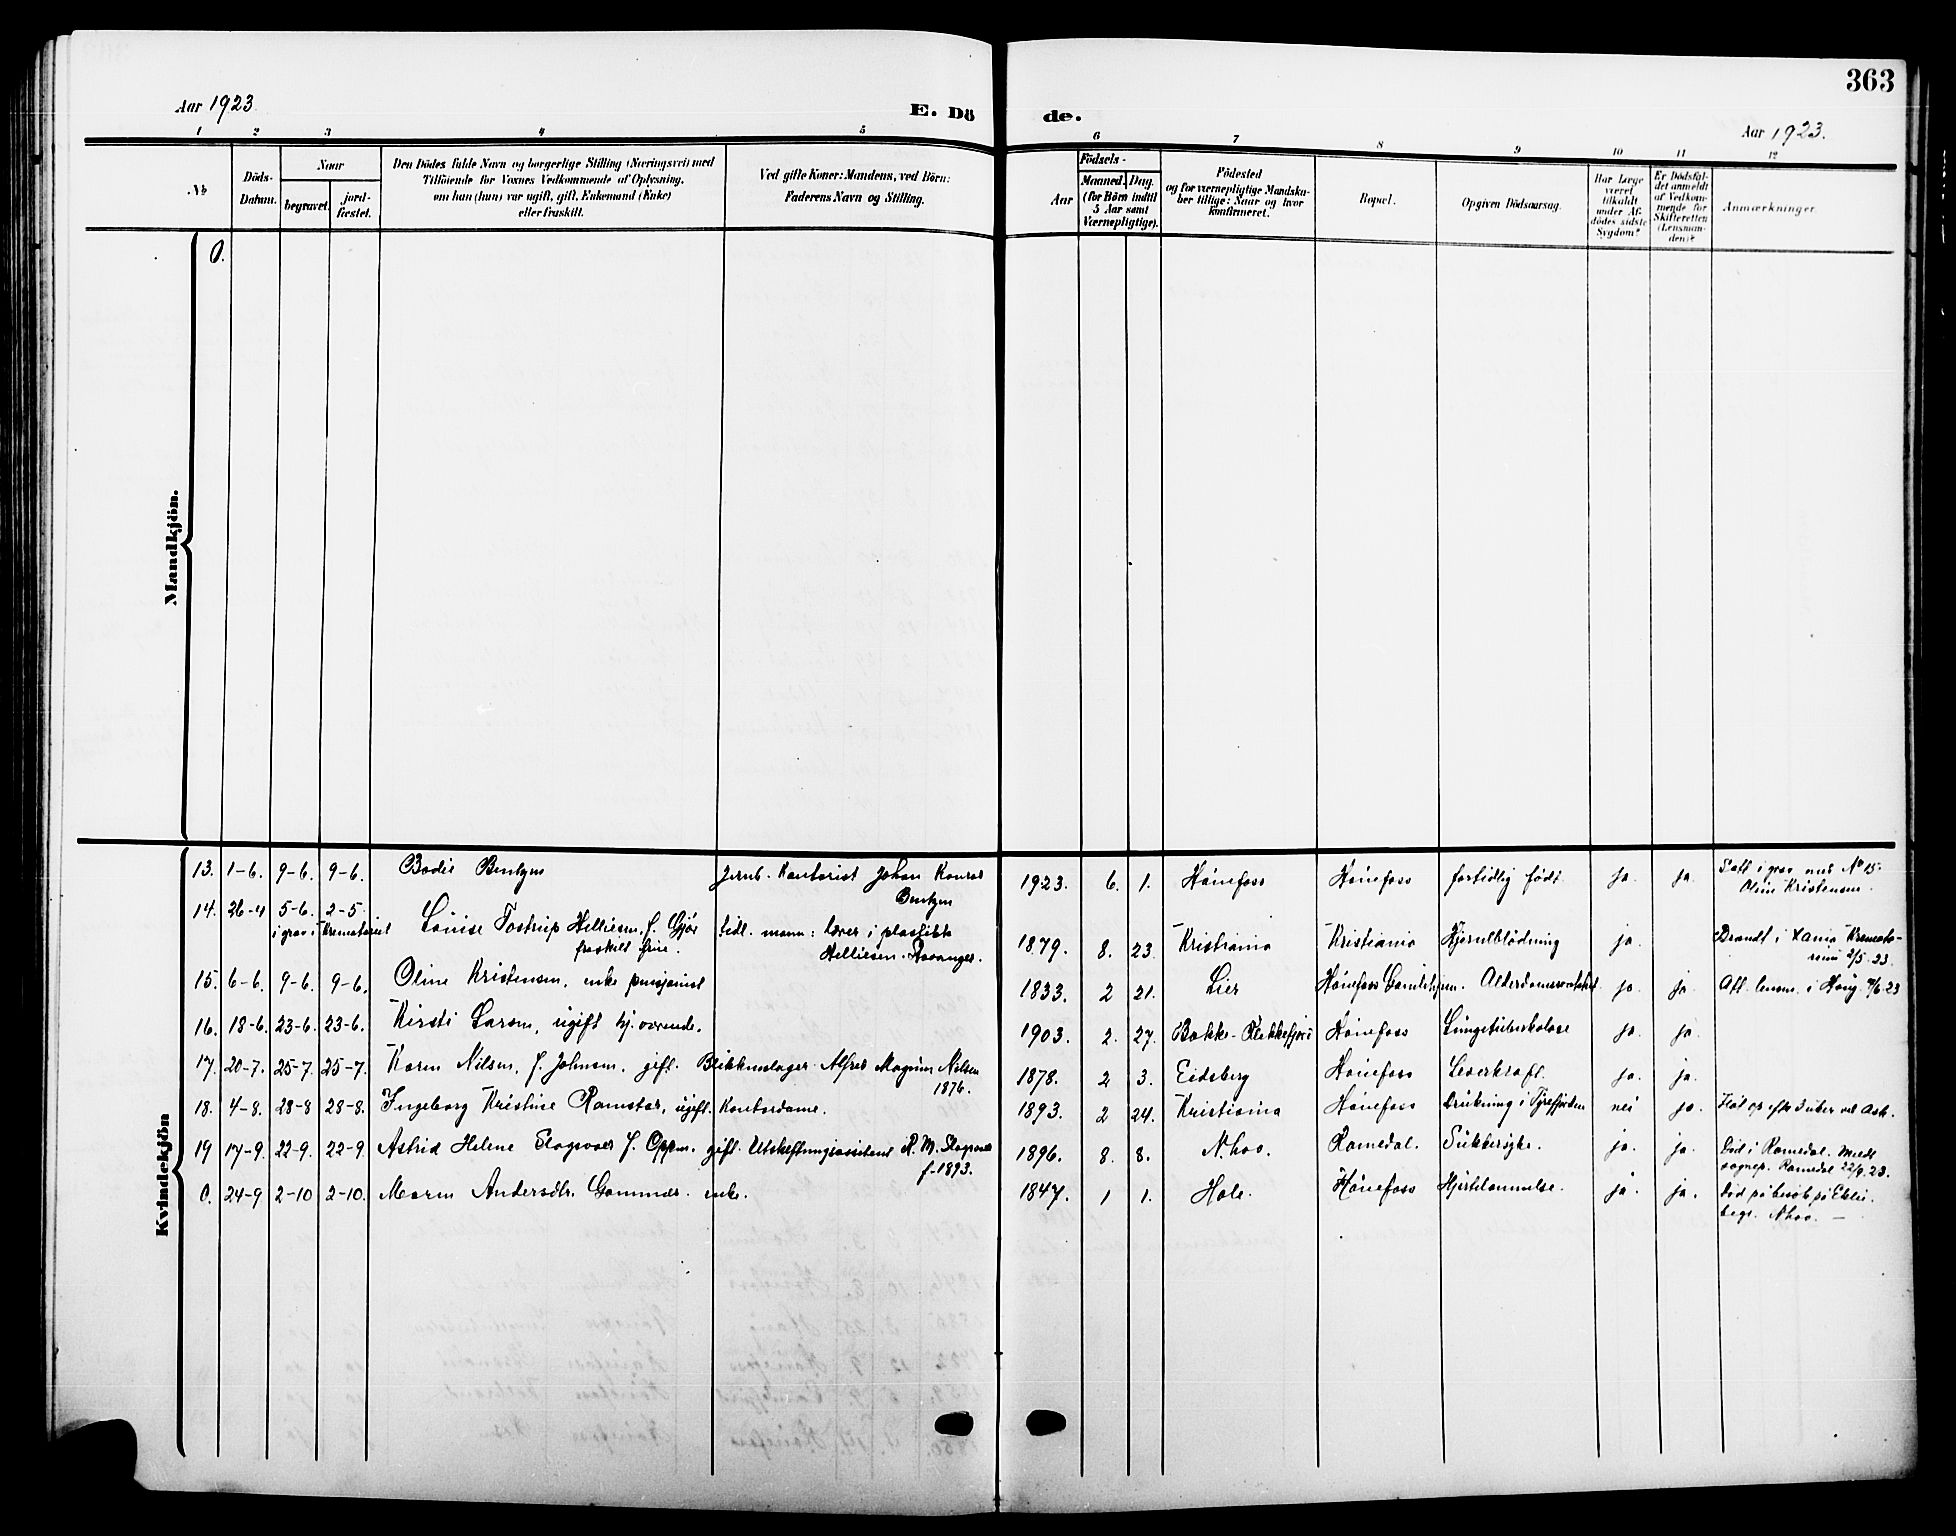 363
Aar 1923.
E. Dö de.
Aar 1923.
1 2 3 4 5 6 7 8 9 10 11 12
No
Döds-Datum.
Naar
begravet.
jord-fæstet.
Den Dödes fulde Navn og borgerlige Stilling (Næringsvei) med
Tilföiende for Voxnes Vedkommende af Oplysning,
om han (hun) var ugift, gift, Enkemand (Enke)
eller fraskilt.
Ved gifte Koner: Mandens, ved Börn:
Faderens Navn og Stilling.
Födsels-
Aar
Maaned. Dag.
(for Börn indtil
5 Aar samt
Værnepligtige).
Födested
og for værnepligtige Mandska-
ber tillige: Naar og hvor
konfirmeret.
Bopæl.
Opgiven Dödsaarsag.
Har Læge
været
tilkaldt
under Af-
dödes sidste
Sygdom?
Er Dödsfal-
det anmeldt
af Vedkom-
mende for
Skifteretten
(Lensman-
den)?
Anmærkninger.
Mandkjön.
0.
Kvindekjön
13. 1-6. 9-6. 9-6. Bodil Bentzen Jernb. Kontorist Johan Konrad 1923. 6. 1. Hönefoss Hönefoss fortidlig födt ja. ja. Satt i grav med No 15.
Bentzen Oline Kristensen.
14. 26-4 5-6. 2-5. Louise Tostrup Helliesen, f. Gjör Sidl. mann: lærer i plastikk 1879. 8. 23. Kristiania Kristiania Hjerneblödning ja. Brandt i Xania Kremato-
i grav i Krematoriet fraskilt frue. Helliesen. Stavanger. rium 2/5 23.
15. 6-6. 9-6. 9-6. Oline Kristensen, enke pensjonist 1833. 2 21. Lier Hönefoss Gamlehjem. Alderdomssvakhet ja. ja. Aft. lensm. i Haug 7/6 23
16. 18-6. 23-6. 23-6. Kirsti Larsen, ugift hj. værende. 1903. 2. 27. Bakke - Flekkefjord Hönefoss Lungetuberkulose ja. ja.
17. 20-7. 25-7. 25-7. Karen Nilsen, f. Johnsen, gift. Blikkenslager Alfred Magnus Nilsen 1878. 2 3. Eidsberg Hönefoss Leverkræft. ja. ja.
1876.
18. 4-8. 28-8 28-8. Ingeborg Kristine Ramstad, ugift. Kontordame. 1893. 2 24. Kristiania Hönefoss Drukning i Tyrefjorden nei ja.
19 17-9. 22-9. 22-9. Astrid Helene Slagsvoll f. Oppen. gift. Utskiftningsassistent R. M. Slagsvoll 1896. 8 8. N.hov. Romedal. Sukkersyke. ja. ja. Död i Romedal. Meldt
f. 1893. sognep. Romedal 22/9. 23.
0. 24-9 2-10 2-10. Maren Andersdtr. Gommer. enke. 1847. 1 1. Hole. Hönefoss Hjertelammelse. ja. ja. Död på besök på Eklei.
begr. N.hov.